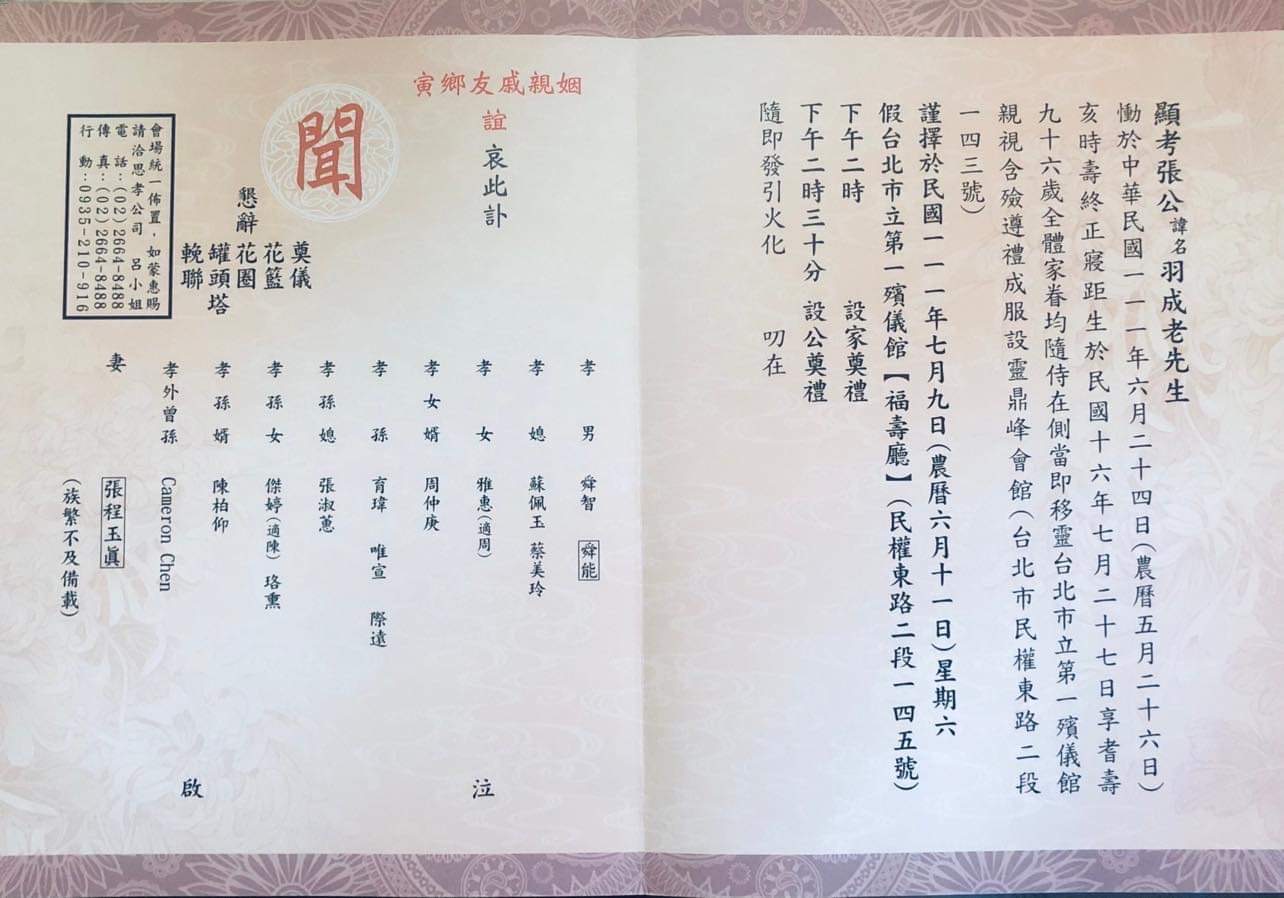 顯考張公諱名羽成老先生
慟於中華民國一一一年六月二十四日(農曆五月二十六日)
亥時壽終正寢距生於民國十六年七月二十七日享耆壽
九十六歲全體家眷均隨侍在側當即移靈台北市立第一殯儀館
親視含殮遵禮成服設靈鼎峰會館(台北市民權東路二段
一四三號)
謹擇於民國一一一年七月九日(農曆六月十一日)星期六
假台北市立第一殯儀館【福壽廳】(民權東路二段一四五號)
下午二時 設家奠禮
下午二時三十分 設公奠禮
隨即發引火化 叨在
寅鄉友戚親姻
誼哀此訃
聞
懇辭
奠儀
花籃
花圈
罐頭塔
輓聯
會場統一佈置,如蒙惠賜
請洽思孝公司 呂小姐
電話:(02)2664-8488
傳真:(02)2664-8488
行動:0935-210-916
孝男 舜智 舜能
孝媳 蘇佩玉 蔡美玲
孝女 雅惠(適周)
孝女婿 周仲庚
孝孫 育瑋 唯宣 際遠
孝孫媳 張淑蕙
孝孫女 傑婷(適陳) 珞熏
孝孫婿 陳柏仰
孝外曾孫 Cameron Chen
妻 張程玉眞
(族繁不及備載)
泣
啟